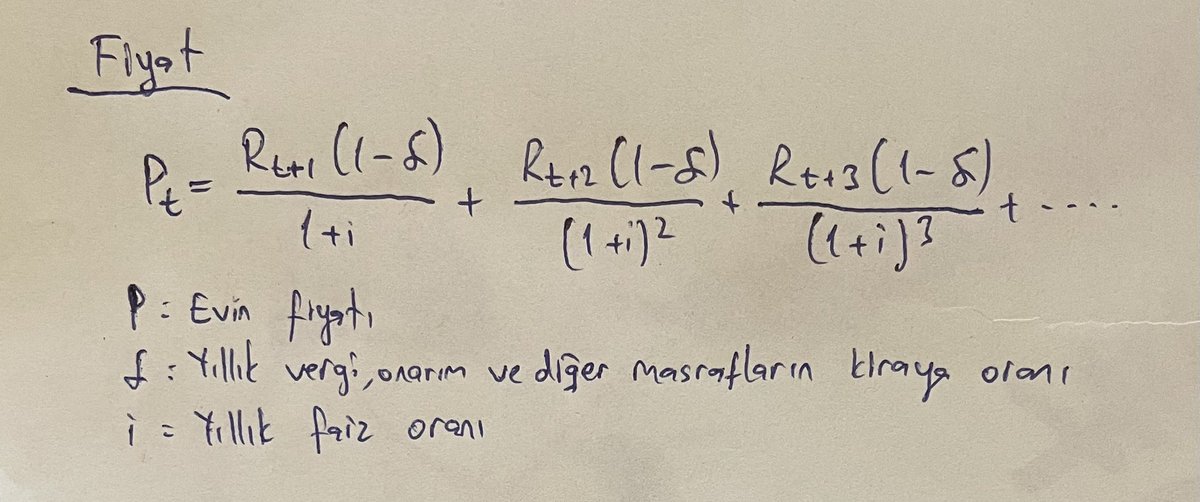 Fiyat
P_t = R_{t+1} (1-δ) / 1+i + R_{t+2} (1-δ) / (1+i)^2 + R_{t+3} (1-δ) / (1+i)^3 + ....
P = Evin fiyatı
δ : Yıllık vergi, onarım ve diğer masrafların kiraya oranı
i = Yıllık faiz oranı